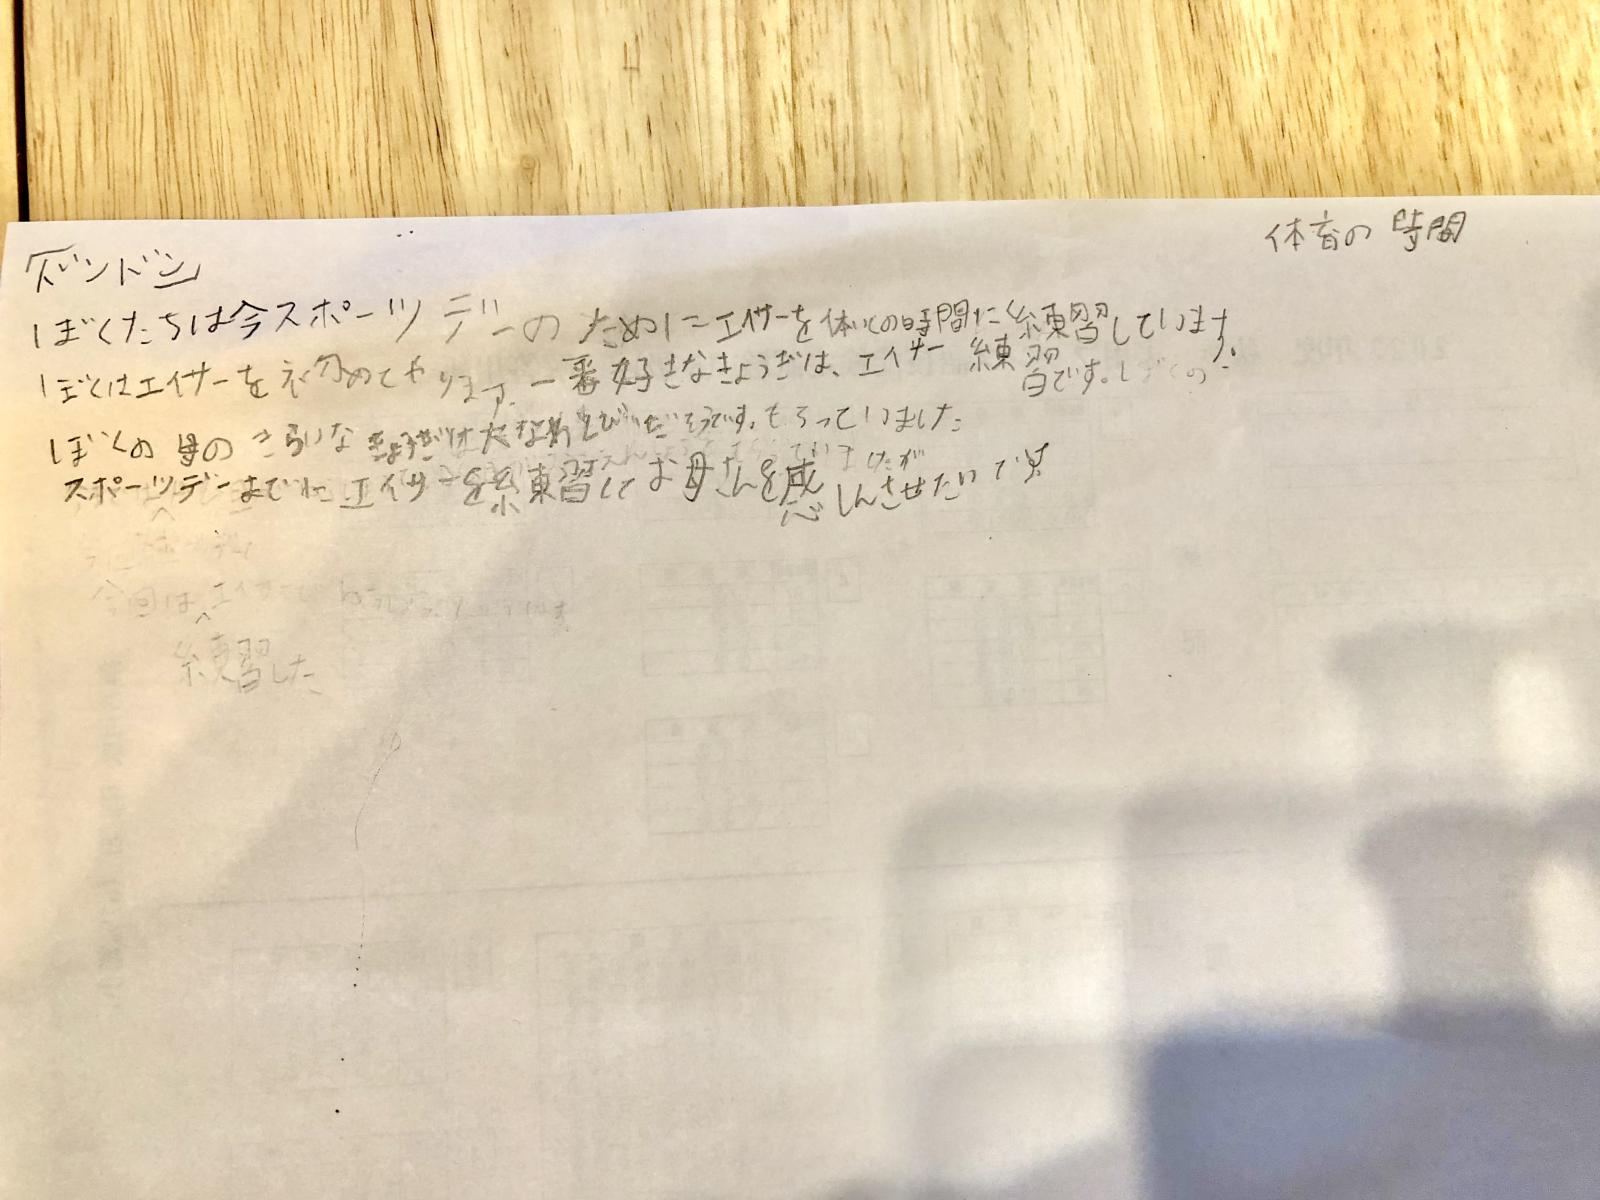 体育の時間
「ズンドン」
ぼくたちは今スポーツデーのためにエイサーを体いくの時間に練習しています。
ぼくはエイサーを初めてやります。一番好きなきょうぎは、エイサー練習
白です。ぼくの
ぼくの母のきらいなきょうぎは大なわとびだそうです。もらっていました
スポーツデーまでにエイサーを練習してお母さんを感しんさせたいです
今回はエイサーで
練習した